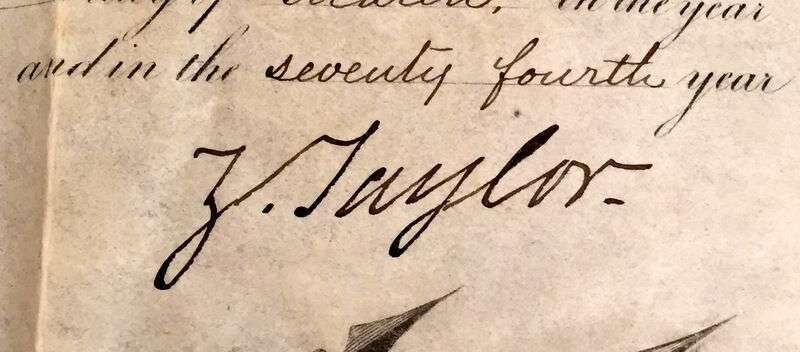 of March, in the year
and in the seventy fourth year
Z. Taylor.